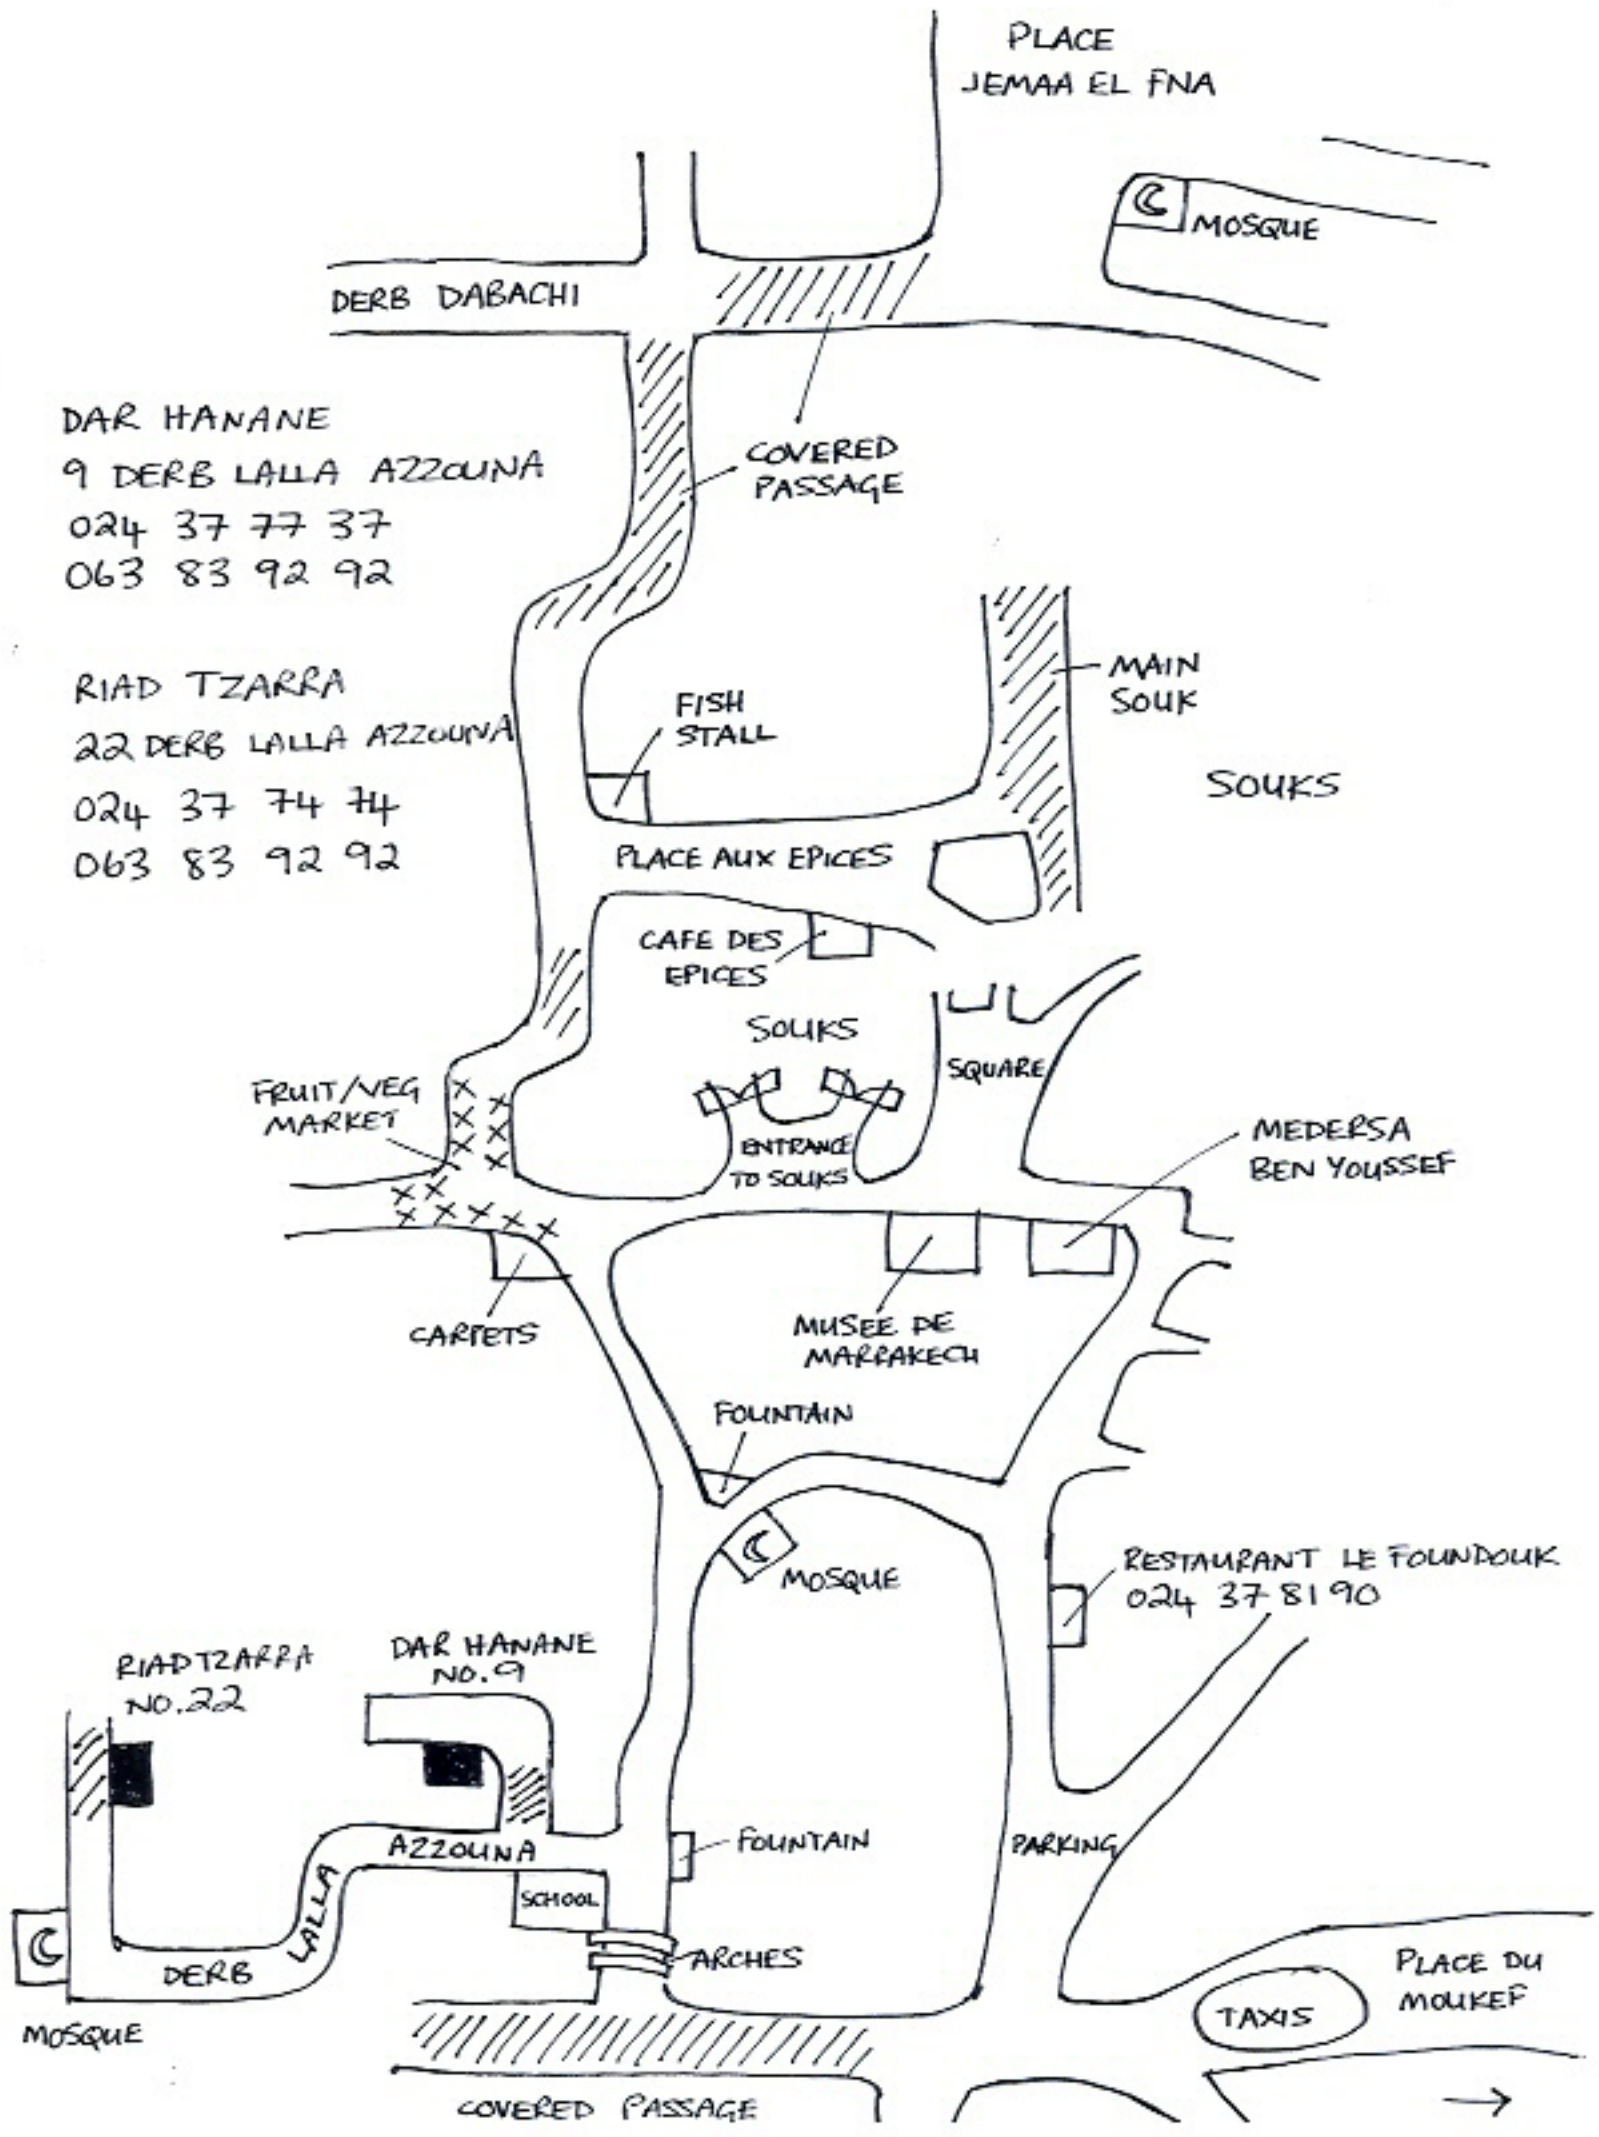 PLACE
JEMAA EL FNA
MOSQUE
DERB DABACHI
COVERED
PASSAGE
DAR HANANE
9 DERB LALLA AZZOUNA
024 37 77 37
063 83 92 92
RIAD TZARRA
22 DERB LALLA AZZOUNA
024 37 74 74
063 83 92 92
FISH
STALL
MAIN
SOUK
SOUKS
PLACE AUX EPICES
CAFE DES
EPICES
SOUKS
SQUARE
FRUIT/VEG
MARKET
ENTRANCE
TO SOUKS
MEDERSA
BEN YOUSSEF
CARPETS
MUSEE DE
MARRAKECH
FOUNTAIN
MOSQUE
RESTAURANT LE FOUNDOUK
024 37 81 90
RIAD TZARRA
NO.22
DAR HANANE
NO.9
AZZOUNA
LALLA
DERB
SCHOOL
FOUNTAIN
PARKING
ARCHES
MOSQUE
TAXIS
PLACE DU
MOUKEF
COVERED PASSAGE